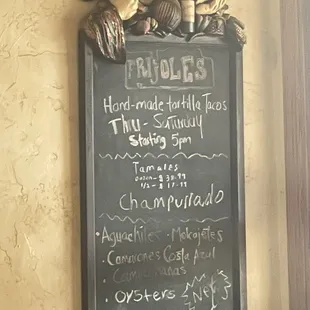 FRIJOLES
Hand-made tortilla Tacos
Thu - Saturday
Starting 5pm
Tamales
Dozen - $ 32.99
1/2 - $ 17.99
Champurrado
• Aguachiles - Molcajetes
• Camarones Costa Azul
• Oysters New